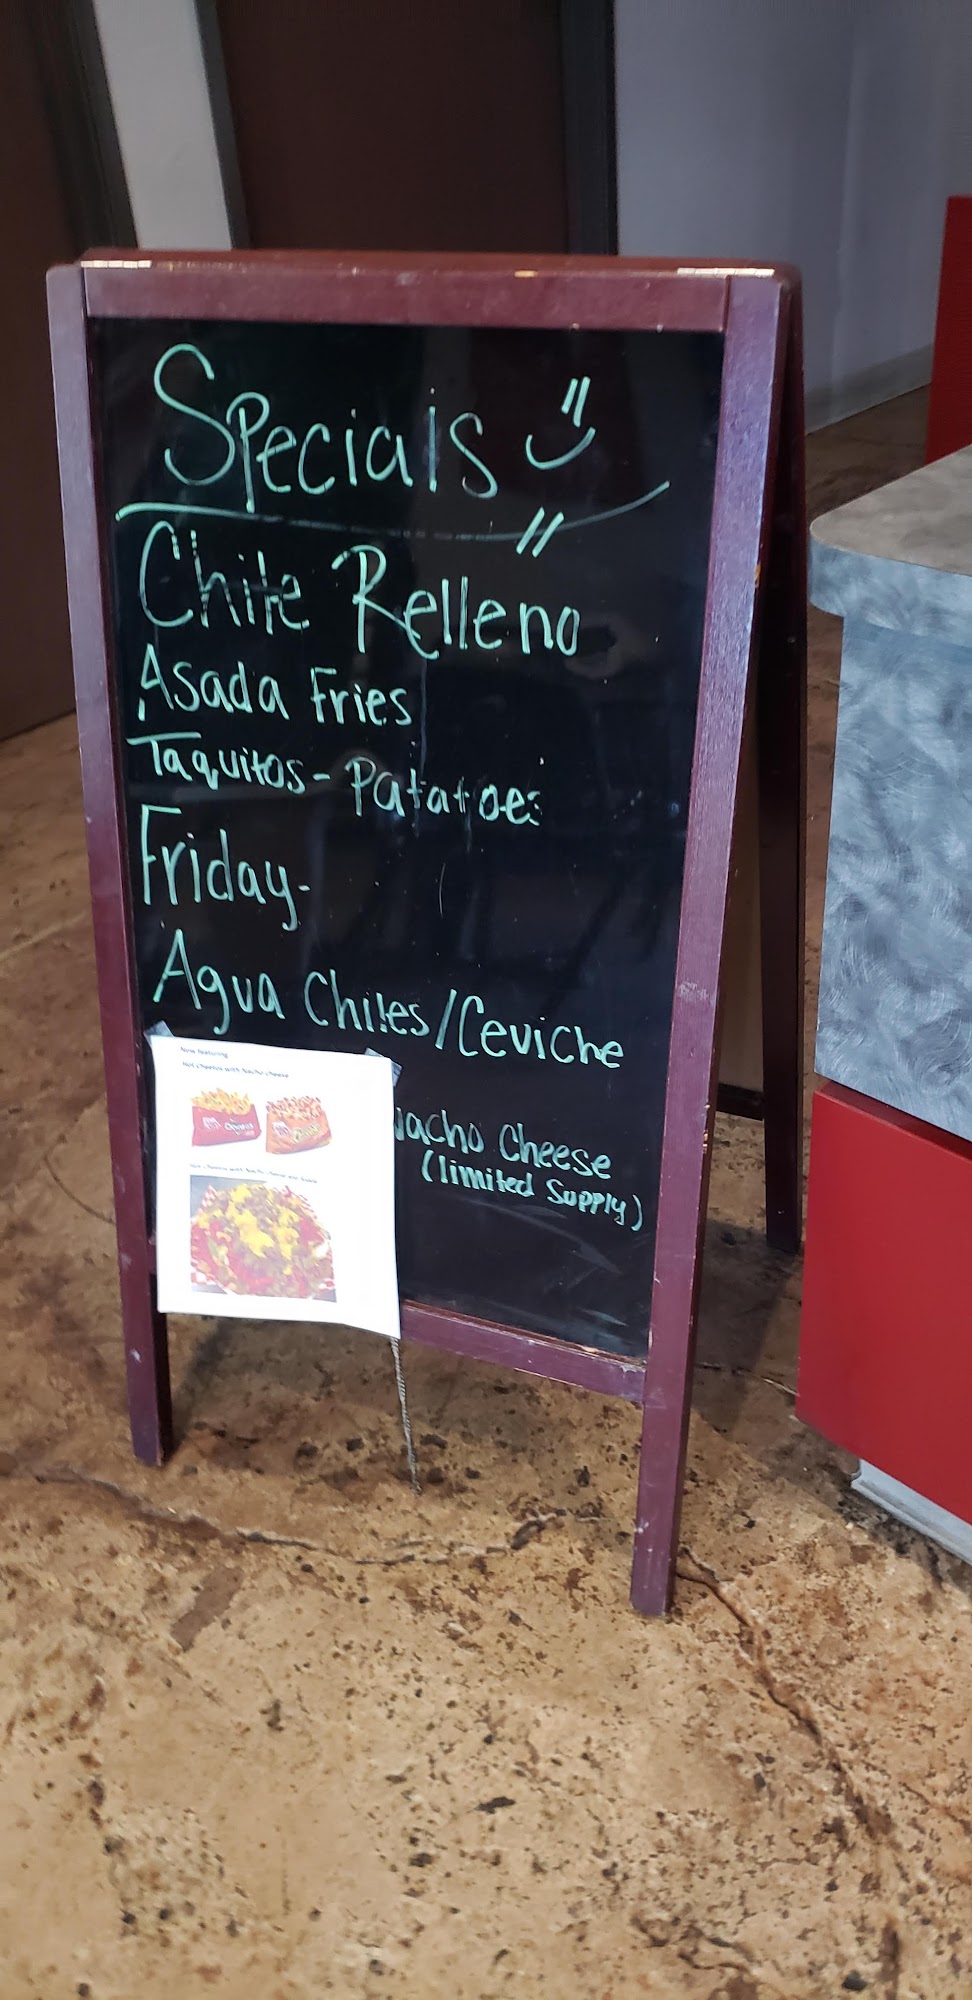 Specials
Chile Relleno
Asada Fries
Taquitos - Patatoes
Friday-
Agua Chiles/Ceviche
Nacho Cheese
(limited Supply)
Now featuring
Hot cheetos with Nacho cheese